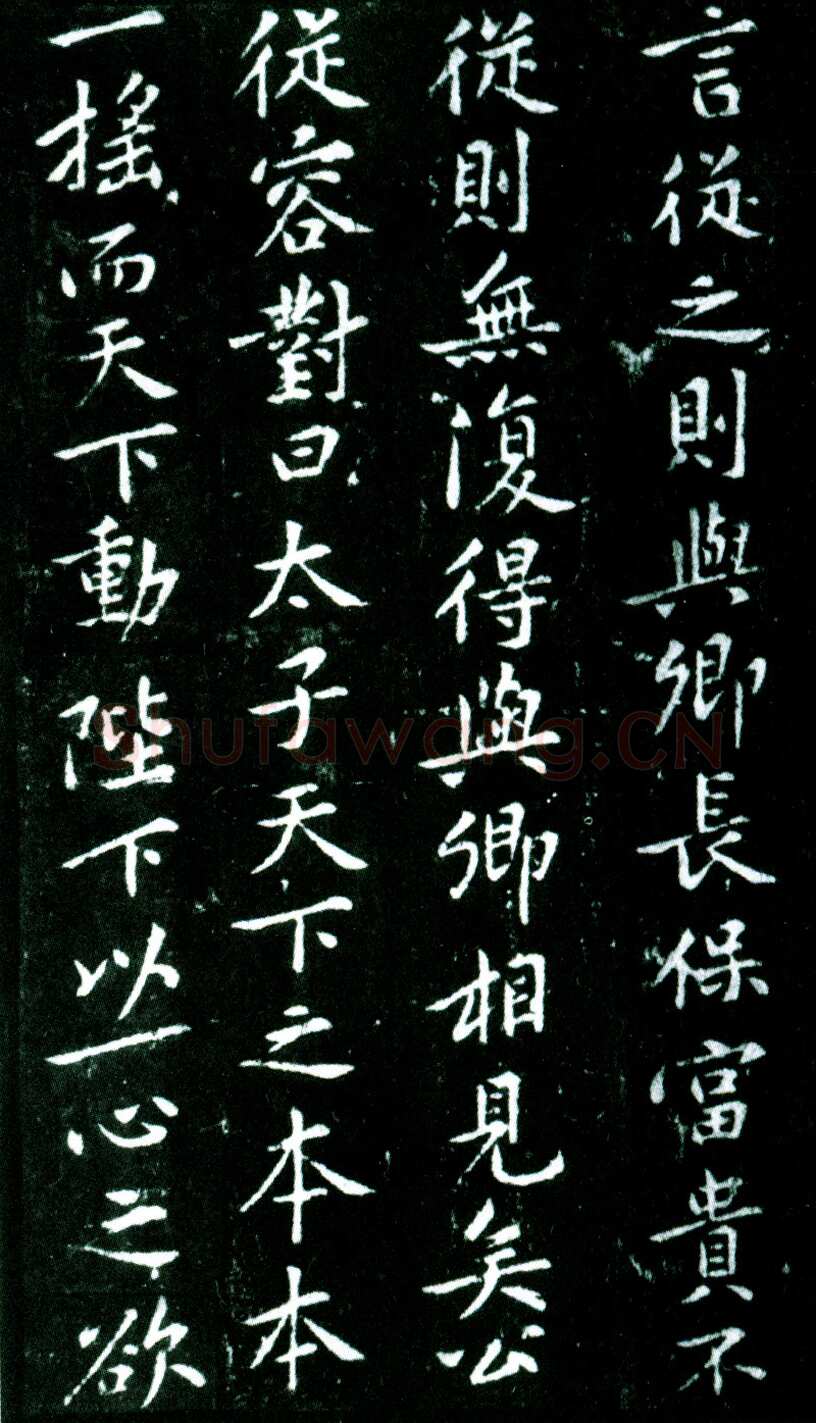 言從之則與卿長保富貴不
從則無復得與卿相見矣公
從容對曰太子天下之本本
一搖而天下動陛下以一心之欲
shufawang.CN